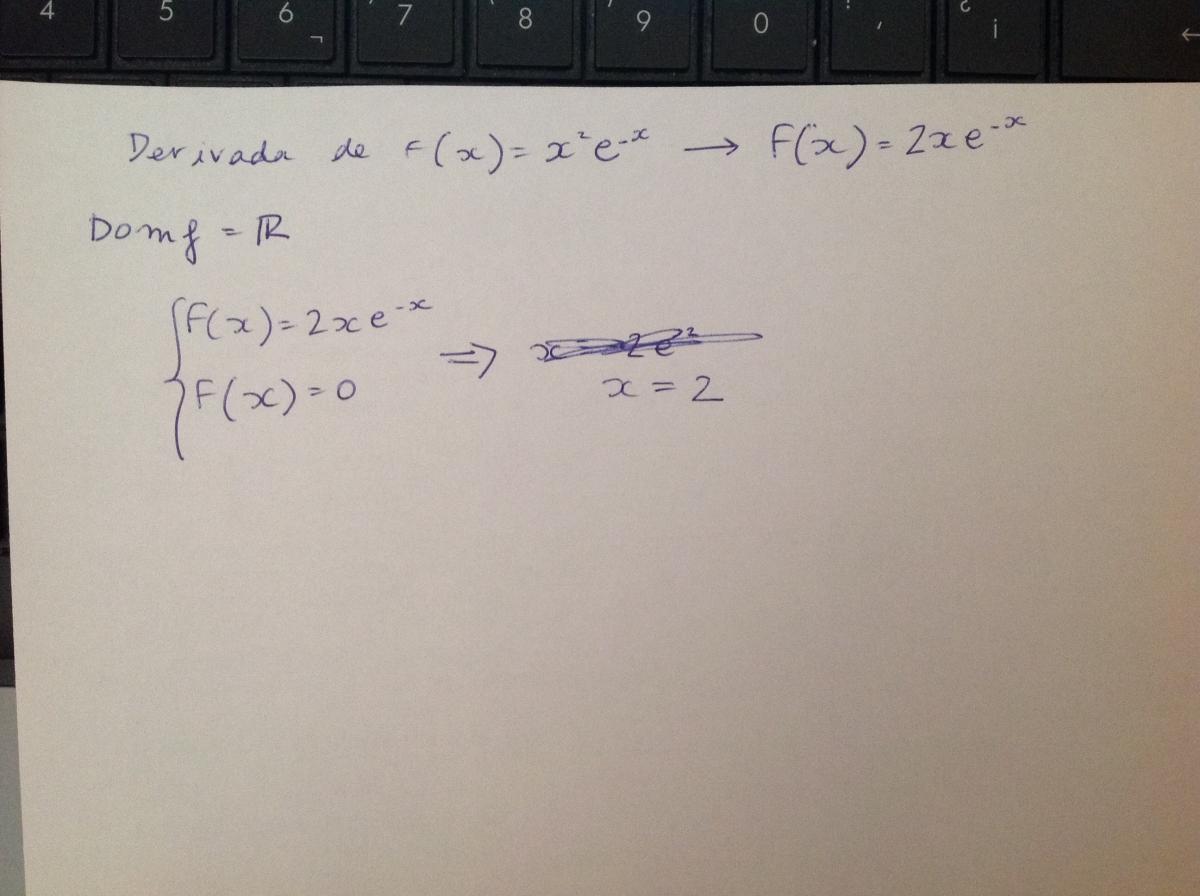 4 5 6 ¬ 7 8 9 0 ¿ ¡ ←
Derivada de F(x) = x²e⁻ˣ → F(ẍ) = 2xe⁻ˣ
Dom f = ℝ
F(x) = 2xe⁻ˣ
F(x) = 0 ⇒ x = 2